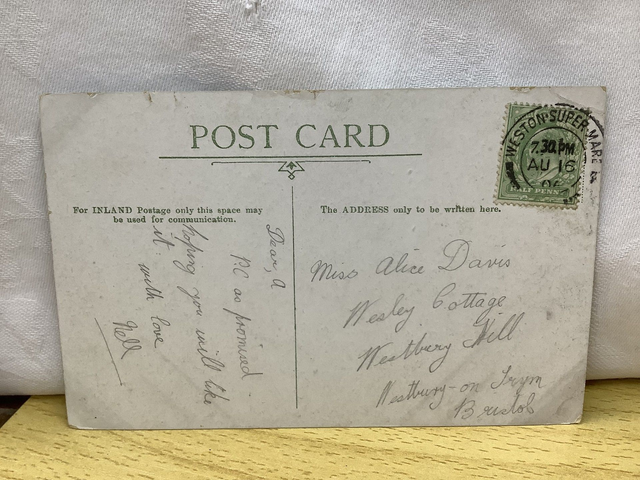 POST CARD
For INLAND Postage only this space may
be used for communication.
The ADDRESS only to be written here.
WESTON-SUPER-MARE
7.30 PM
AU 16
06
HALF PENNY
Dear, A
P.C as promised.
hoping you will like
it. with love
Nell
Miss Alice Davis
Wesley Cottage
Westbury Hill
Westbury-on Trym
Bristol